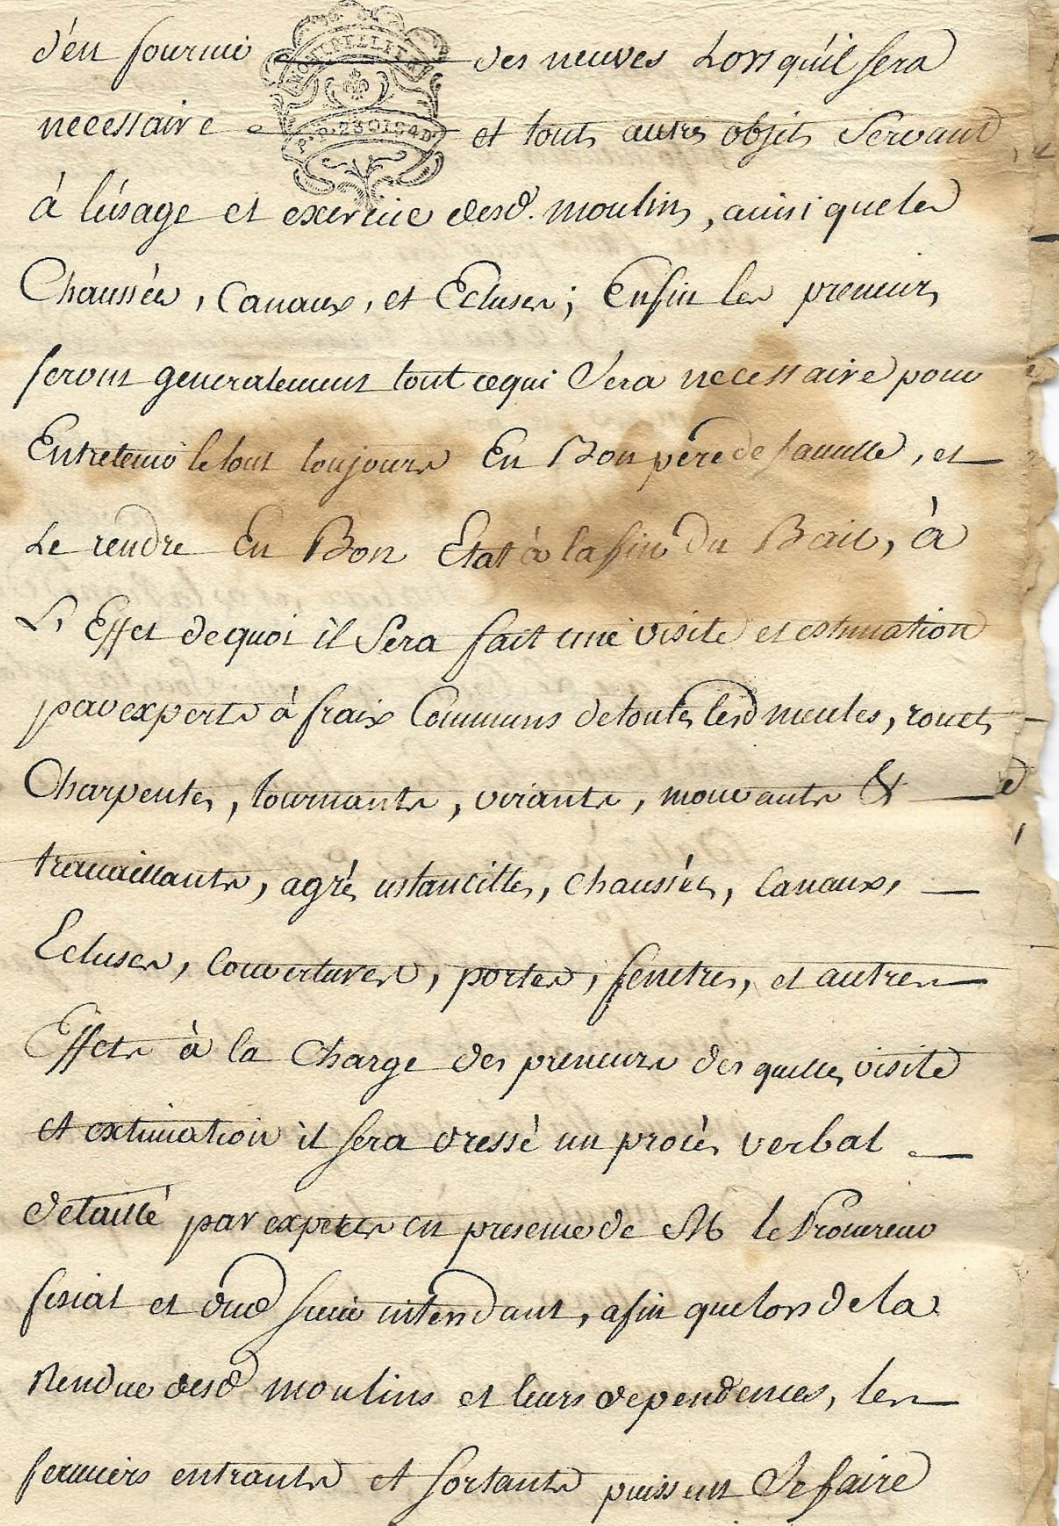 d'en fournir des neuves Lors qu'il sera
MONTPELLIER
necessaire et touts autres objets Servant
P.P. 2 SOLS 4 D.
à l'usage et exercice desd. moulins, ainsi que les
Chaussées, Canaux, et Ecluses; Enfin les preneurs
feront generalement tout cequi Sera necessaire pour
Entretenir le tout toujours En Bon pere de famille, et
Le rendre En Bon Etat à la fin du Bail, à
L'Effet dequoi il Sera fait une visite et estimation
par experts à fraix Communs detoutes lesd meules, rouets
Charpentes, tournants, virants, mouvants &
travaillants, agrés ustancilles, chaussées, Canaux,
Ecluses, Couvertures, portes, fenetres, et autres
Effets à la Charge des preneurs des quelles visite
et extimation il sera dressé un procès verbal
detaillé par experts en presence de M le Procureur
fiscal et dud sieur intendant, afin quelors dela
Rendue desd moulins et leurs dependences, les
fermiers entrants et sortants puissent Se faire